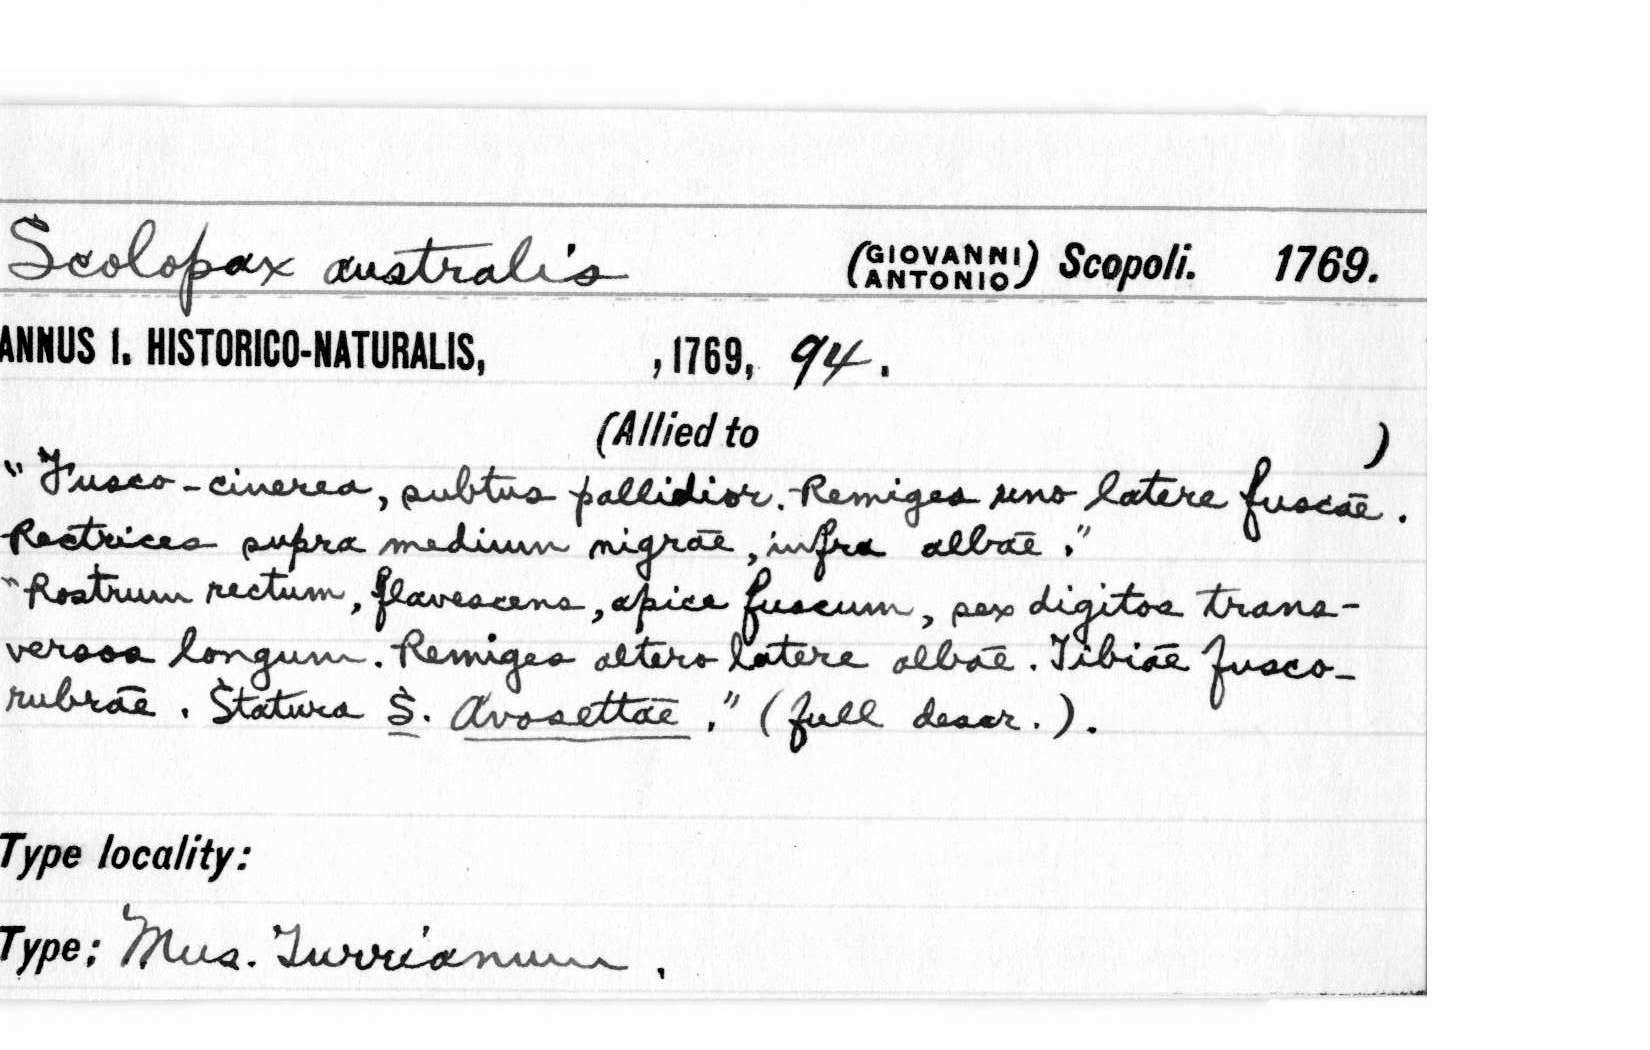 Scolopax australis (GIOVANNI ANTONIO) Scopoli. 1769.
ANNUS I. HISTORICO-NATURALIS, , 1769, 94.
(Allied to )
"Fusco-cinerea, subtus pallidior. Remiges uno latere fuscae.
Rectrices supra medium nigrae, infra albae."
"Rostrum rectum, flavescens, apice fuscum, sex digitos trans-
versos longum. Remiges altero latere albae. Tibiae fusco-
rubrae. Statura S. Avosettae." (full descr.).
Type locality:
Type: Mus. Turrianum.